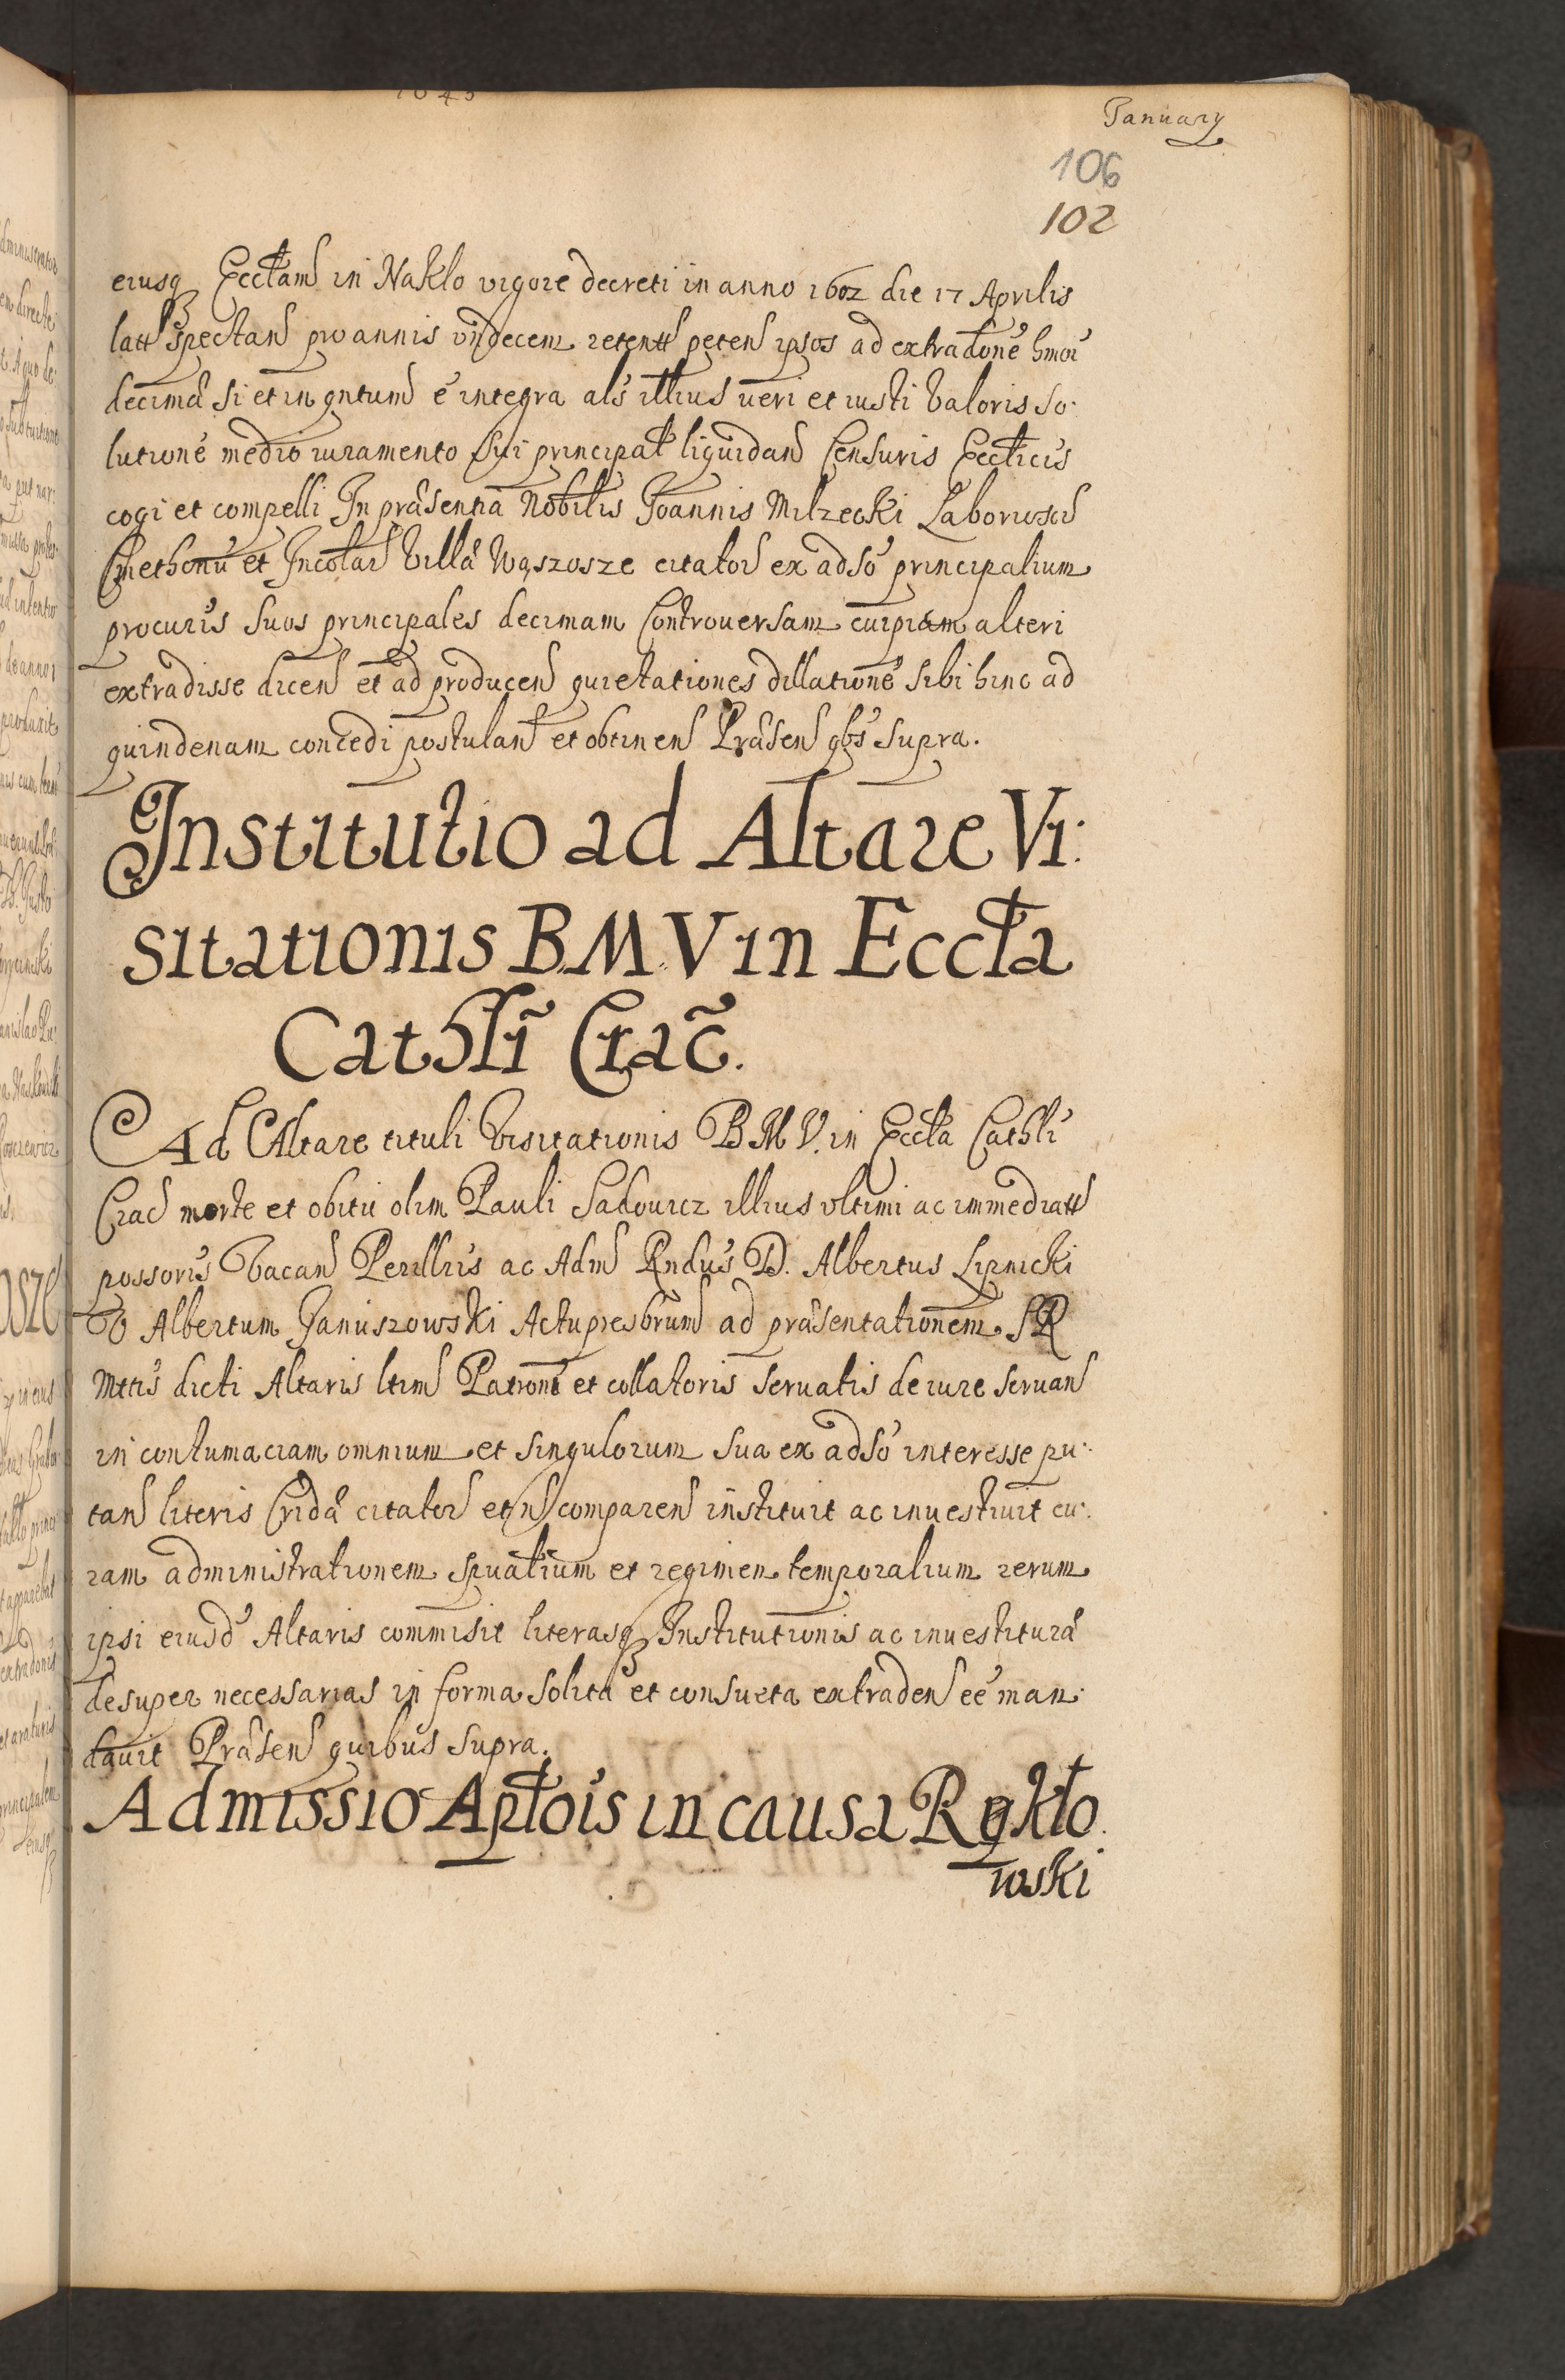 January
106
102
eiusq Eccłam in Nakło vigore decreti in anno 1602 die 17 Aprilis
latt spectan pro annis vndecem retentt peten ipsos ad extradone hmoi
decima si et in qntum e integra als illius ueri et iusti valoris so:
lutione medio iuramento sui principal liquidan Censuris Eccticis
cogi et compelli In præsentia Nobilis Joannis Milzecki Laborios
Cmethonu et Incolar villæ Wąszosze citator ex adso principalium
procuris suos principales decimam Controuersam cuipiam alteri
extradisse dicen et ad producen quietationes dillatione sibi hinc ad
quindenam concedi postulan et obtinen Præsen qbs supra.
Institutio ad Altare Vi:
sitationis B.M.V in Eccła
Cathłi Crac.
Ad Altare tituli Visitationis B M V. in Eccła Cathli
Crac morte et obitu olim Pauli Sadowicz illius vltimi ac immediatt
possoris vacan Perillris ac Adm Rndus D. Albertus Lipnicki
Albertum Januszowski Actupresbrum ad præsentationem S R
Mttis dicti Altaris ltim Patroni et collatoris seruatis de iure seruan
in contumaciam omnium et singulorum sua ex adso interesse pu:
tan literis Cridæ citator et n comparen instituit ac inuestiuit cu:
ram administrationem spualium et regimen temporalium rerum
ipsi eiusde Altaris commisit literasq Institutionis ac inuestituræ
desuper necessarias in forma solita et consueta extraden ee man:
dauit Præsen quibus supra.
Admissio Apłois in causa Rykło.
wski